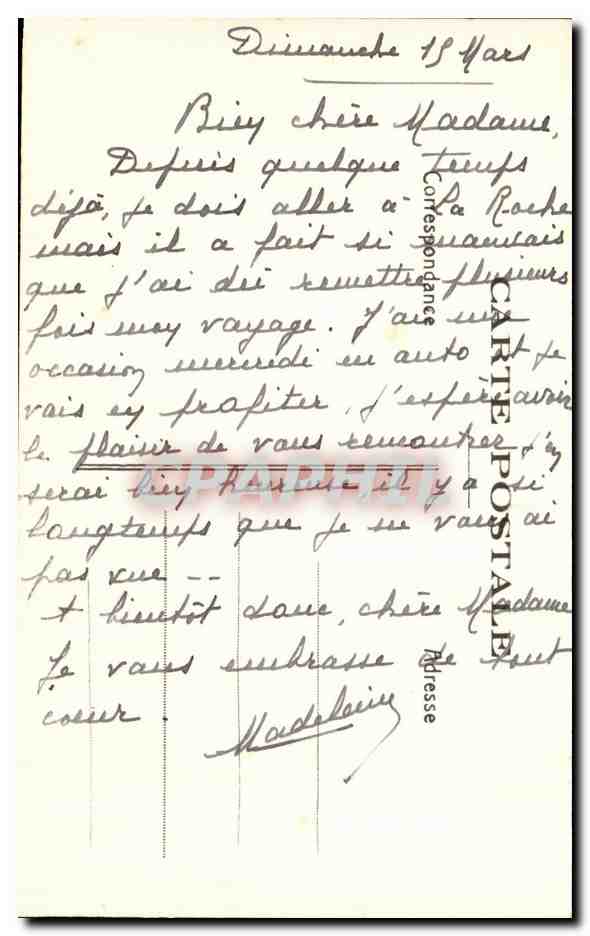 Dimanche 15 Mars
Bien chère Madame,
Depuis quelque temps
déjà, je dois aller à La Roche
mais il a fait si mauvais
que j'ai dû remettre plusieurs
fois mon voyage. J'ai une
occasion mercredi en auto et je
vais en profiter, j'espère avoir
le plaisir de vous rencontrer j'en
serai bien heureuse, il y a si
longtemps que je ne vous ai
pas vue --
A bientôt donc, chère Madame
Je vous embrasse de tout
coeur.
Madeleine
Correspondance
CARTE POSTALE
Adresse
CPAPHIL